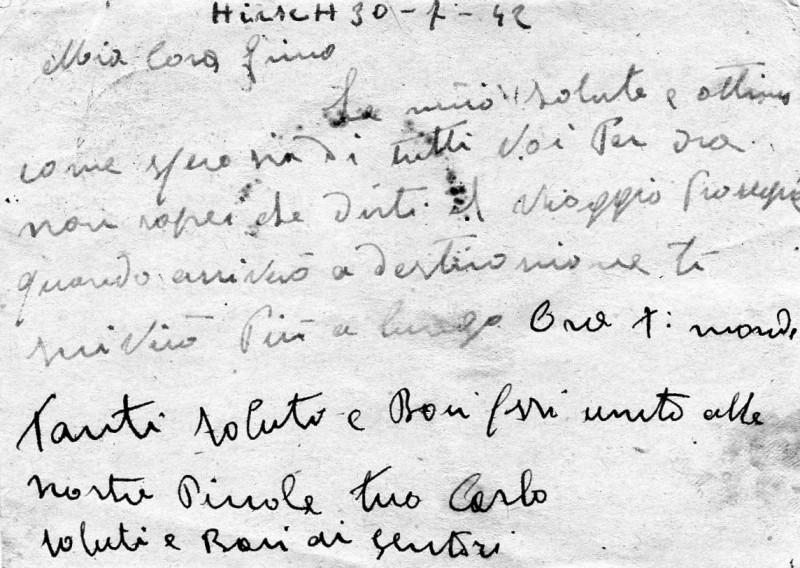 Hirsch 30-7-42
Mia Cara Gina
La mia salute e ottima
come spero sia di tutti Voi Per ora
non saprei che dirti il viaggio Prosegue
quando arriverò a destinazione ti
scriverò Più a lungo Ora ti mando
Tanti saluti e Baci unito alle
nostre Piccole tuo Carlo
saluti e Baci ai genitori